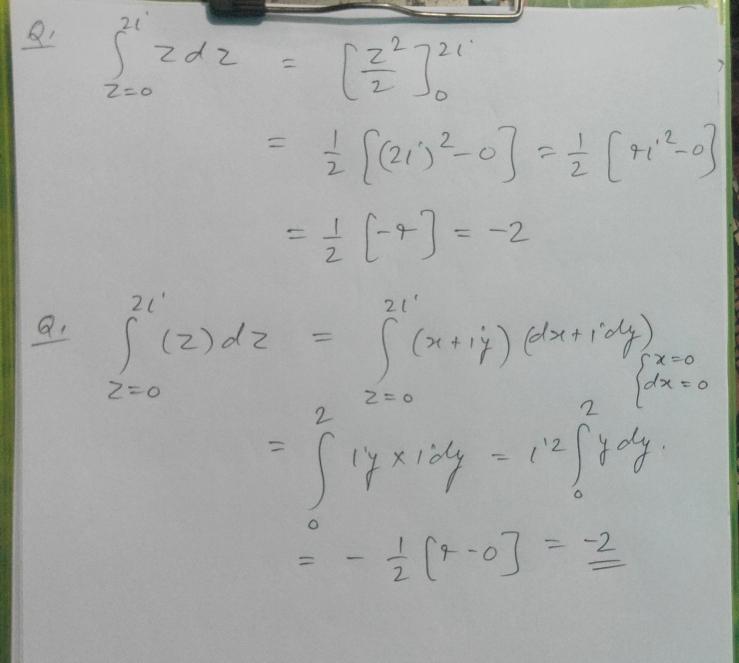 Q. ∫_{z=0}^{2i} z dz = [z²/2]_0^{2i}
= 1/2 [(2i)² - 0] = 1/2 [4i² - 0]
= 1/2 [-4] = -2
Q. ∫_{z=0}^{2i} (z) dz = ∫_{z=0}^{2i} (x + iy) (dx + idy) {x = 0
dx = 0
= ∫_0^2 iy × idy = i² ∫_0^2 y dy.
= - 1/2 [4 - 0] = -2